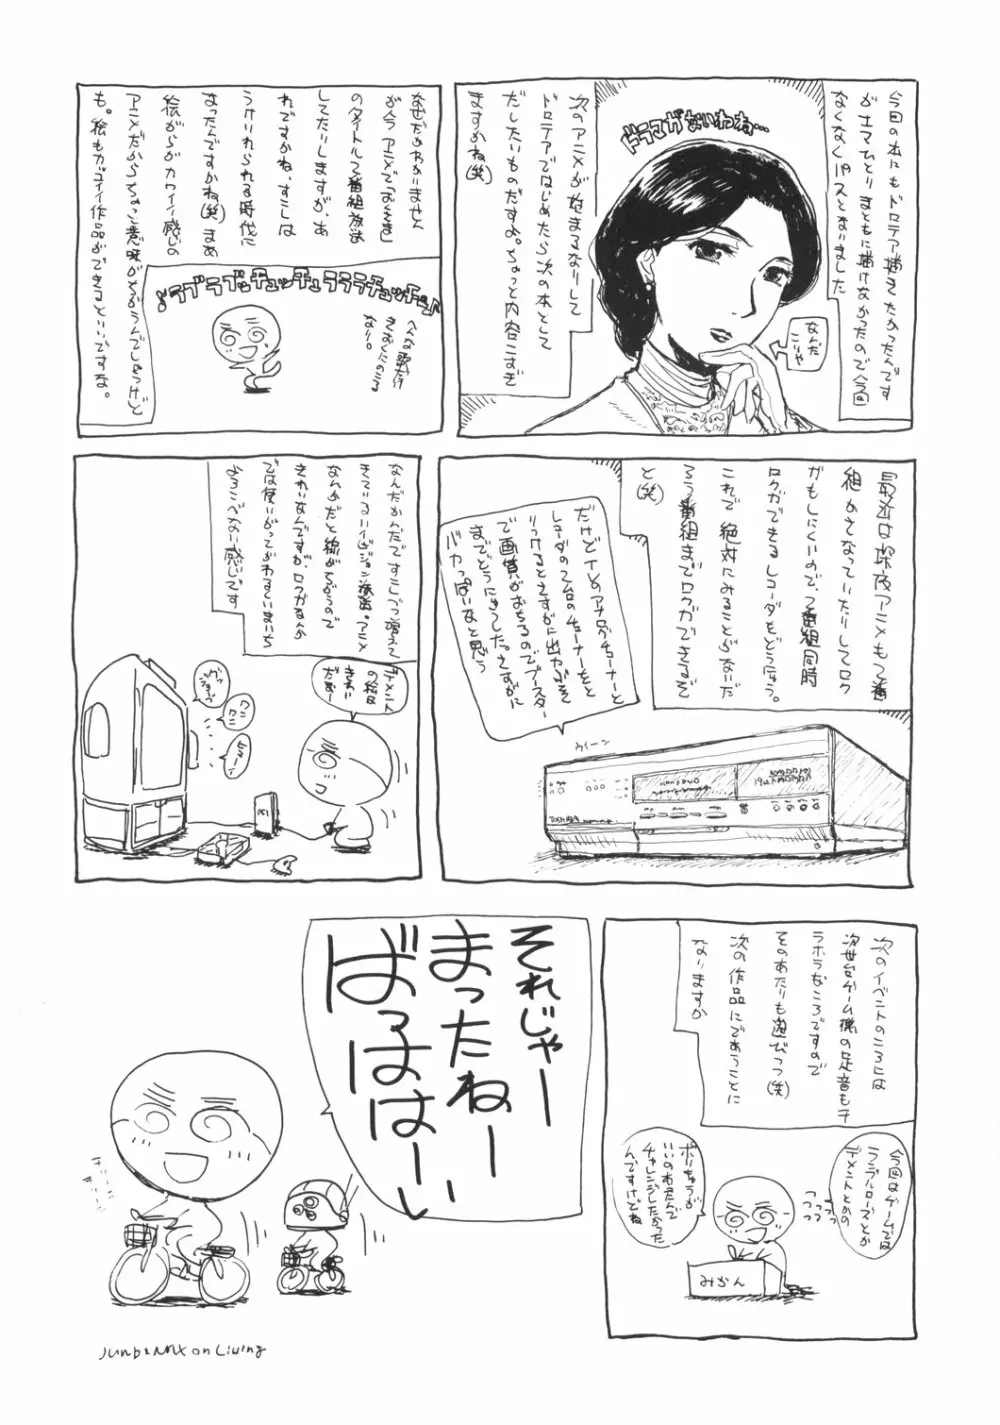 今回の本にもドロテア描きたかったんです
がナマひとりまともに描けなかったので今回
なくなくパスとなりました
ドラマがないわね…
なんだ
こりゃ
次のアニメが始まるなりして
ドロテアではじめたら次の本として
だしたいものだすよ。ちょっと内容こすぎ
ますかね(笑)
なぜだかわかりません
が今アニメで「おくさま」
のタイトルで2番組放送
してたりしますが、あ
れですかね、すこしは
うけいれられる時代に
なったんですかね(笑)まあ
絵がらがカワイイ感じの
アニメだからちょっと意味がちがうんでしょうけど
も。絵もカッコイイ作品ができるといいですな。
♪ラブラブッチュッチュラララチュッチュ♪
へんな歌だけ
きおくにのこる
なり。
最近は深夜アニメも2番
組かさなっていたりしてロク
ガもしにくいので、2番組同時
ロクガできるレコーダをどうにゅう。
これで絶対にみることがないだ
ろう番組までロクガできるぞ
と(笑)
だけどTVのアナログチューナーと
レコーダの2台のチューナーをと
りつけるとさすがに出力がおち
で画質がおちるのでブースター
までどうにゅうした。さすがに
バカっぽいなと思う
ウイーン
TOSHIBA
なんだかんだですこしづつ増えて
きているハイビジョン放送。アニメ
なんかだと線がちがうので
きれいなんですが、ロクガなんか
では使いがってがわるくいまいち
よろこべない感じです
デメント
の絵は
きれい
だなー
ワンワン
ヒューン
次のイベントのころには
次世台ゲーム機の足音もチ
ラホラなころですので
そのあたりも遊びつつ(笑)
次の作品にであうことに
なりますか
今回はゲームでは
ランブルローズとか
デメントとかの
ボリちゅうが
いいのわたんで
チャレンジしたかった
んですけどね
みかん
それじゃー
まったねー
ばっははーい
JunbeNMX on Living